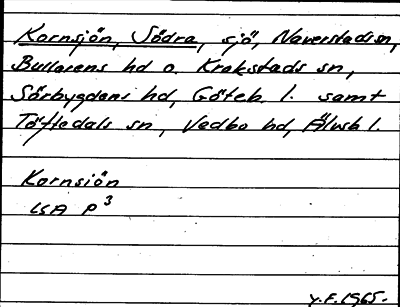 Kornsjön, Södra, sjö, Naverstads sn,
Bullarens hd o. Krokstads sn,
Sörbygdens hd, Göteb. l. samt
Töftedals sn, Vedbo hd, Älvsb l.
Kornsjön
LSA P3
Y.F. 1965.